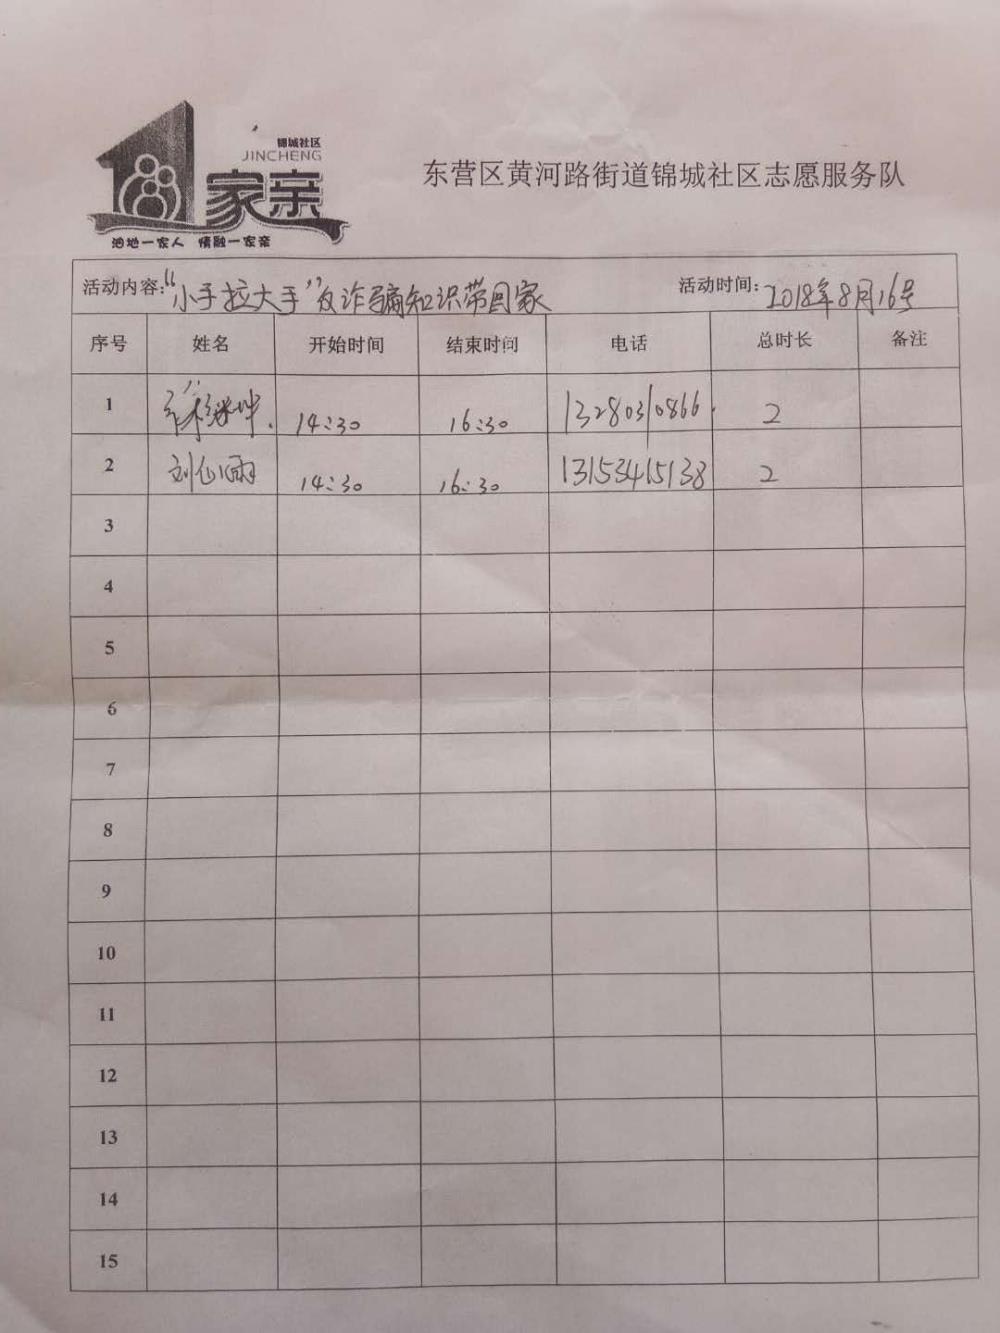 锦城社区
JINCHENG
家亲
泊地一家人 情融一家亲
东营区黄河路街道锦城社区志愿服务队
活动内容:“小手拉大手”反诈骗知识带回家 活动时间:2018年8月16号
序号 姓名 开始时间 结束时间 电话 总时长 备注
1 14:30 16:30 13280310866 2
2 刘仙雨 14:30 16:30 13153415138 2
3
4
5
6
7
8
9
10
11
12
13
14
15